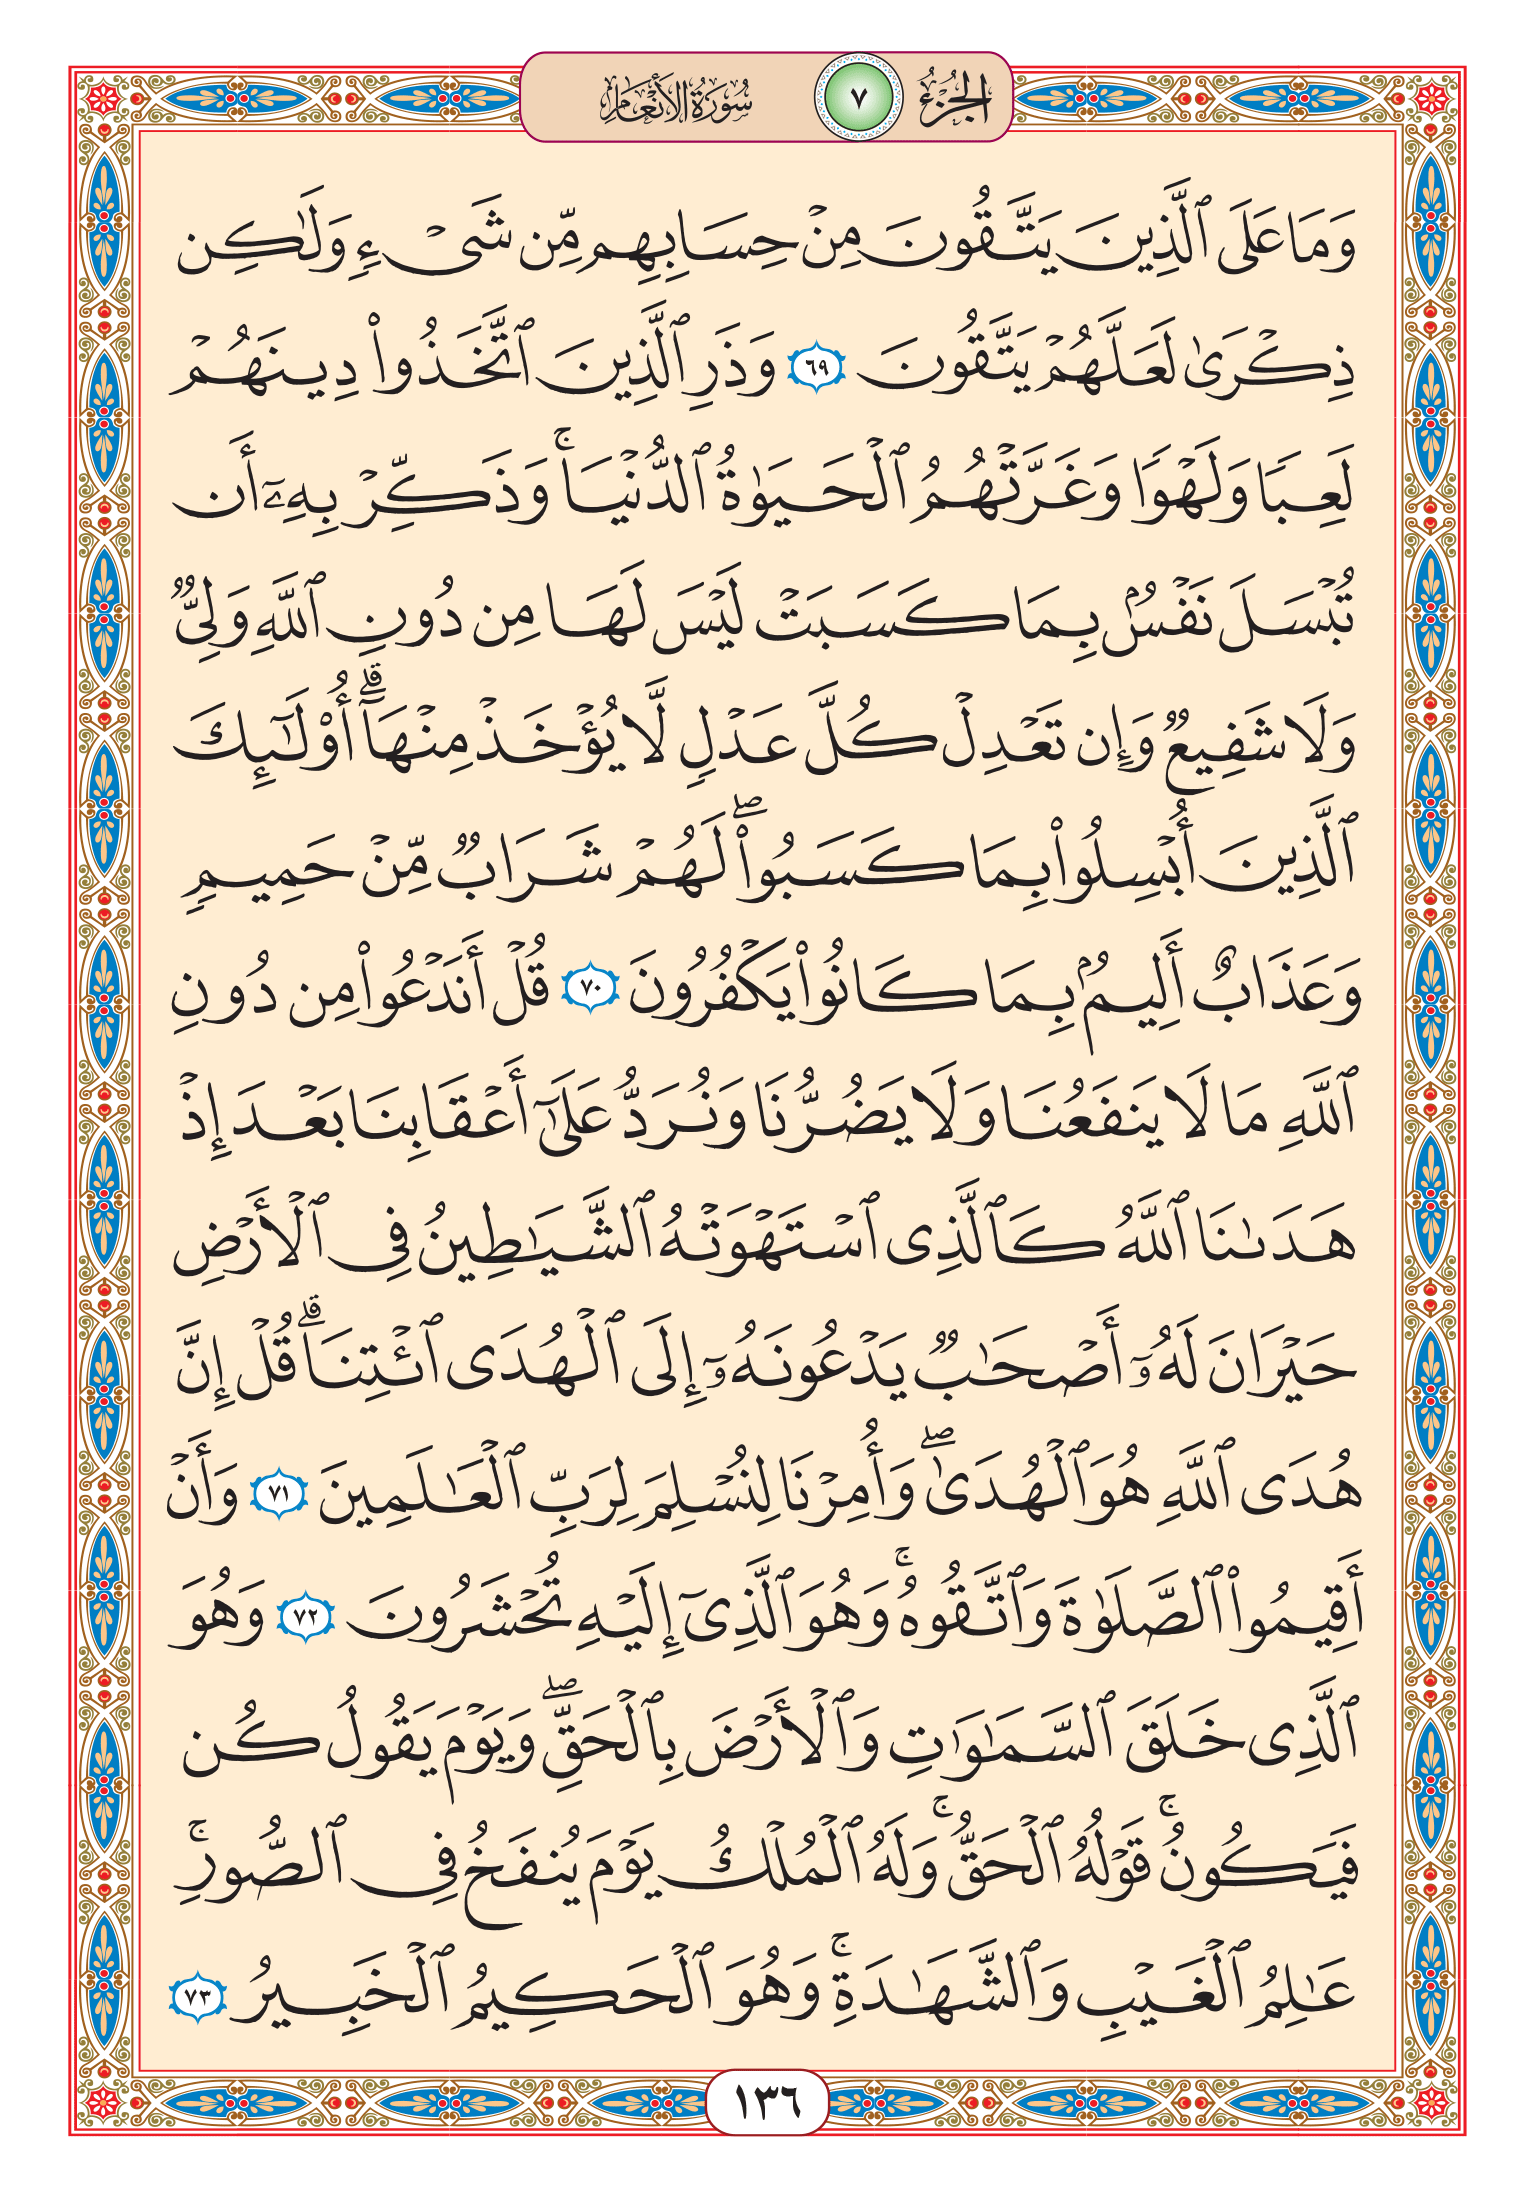 الجزء ٧ سورة الأنعام
وَمَا عَلَى ٱلَّذِينَ يَتَّقُونَ مِنۡ حِسَابِهِم مِّن شَيۡءٖ وَلَٰكِن
ذِكۡرَىٰ لَعَلَّهُمۡ يَتَّقُونَ ٦٩ وَذَرِ ٱلَّذِينَ ٱتَّخَذُواْ دِينَهُمۡ
لَعِبٗا وَلَهۡوٗا وَغَرَّتۡهُمُ ٱلۡحَيَوٰةُ ٱلدُّنۡيَاۚ وَذَكِّرۡ بِهِۦٓ أَن
تُبۡسَلَ نَفۡسُۢ بِمَا كَسَبَتۡ لَيۡسَ لَهَا مِن دُونِ ٱللَّهِ وَلِيّٞ
وَلَا شَفِيعٞ وَإِن تَعۡدِلۡ كُلَّ عَدۡلٖ لَّا يُؤۡخَذۡ مِنۡهَآۗ أُوْلَٰٓئِكَ
ٱلَّذِينَ أُبۡسِلُواْ بِمَا كَسَبُواْۖ لَهُمۡ شَرَابٞ مِّنۡ حَمِيمٖ
وَعَذَابٌ أَلِيمُۢ بِمَا كَانُواْ يَكۡفُرُونَ ٧٠ قُلۡ أَنَدۡعُواْ مِن دُونِ
ٱللَّهِ مَا لَا يَنفَعُنَا وَلَا يَضُرُّنَا وَنُرَدُّ عَلَىٰٓ أَعۡقَابِنَا بَعۡدَ إِذۡ
هَدَىٰنَا ٱللَّهُ كَٱلَّذِي ٱسۡتَهۡوَتۡهُ ٱلشَّيَٰطِينُ فِي ٱلۡأَرۡضِ
حَيۡرَانَ لَهُۥٓ أَصۡحَٰبٞ يَدۡعُونَهُۥٓ إِلَى ٱلۡهُدَى ٱئۡتِنَاۗ قُلۡ إِنَّ
هُدَى ٱللَّهِ هُوَ ٱلۡهُدَىٰۖ وَأُمِرۡنَا لِنُسۡلِمَ لِرَبِّ ٱلۡعَٰلَمِينَ ٧١ وَأَنۡ
أَقِيمُواْ ٱلصَّلَوٰةَ وَٱتَّقُوهُۚ وَهُوَ ٱلَّذِيٓ إِلَيۡهِ تُحۡشَرُونَ ٧٢ وَهُوَ
ٱلَّذِي خَلَقَ ٱلسَّمَٰوَٰتِ وَٱلۡأَرۡضَ بِٱلۡحَقِّۖ وَيَوۡمَ يَقُولُ كُن
فَيَكُونُۚ قَوۡلُهُ ٱلۡحَقُّۚ وَلَهُ ٱلۡمُلۡكُ يَوۡمَ يُنفَخُ فِي ٱلصُّورِۚ
عَٰلِمُ ٱلۡغَيۡبِ وَٱلشَّهَٰدَةِۚ وَهُوَ ٱلۡحَكِيمُ ٱلۡخَبِيرُ ٧٣
١٣٦